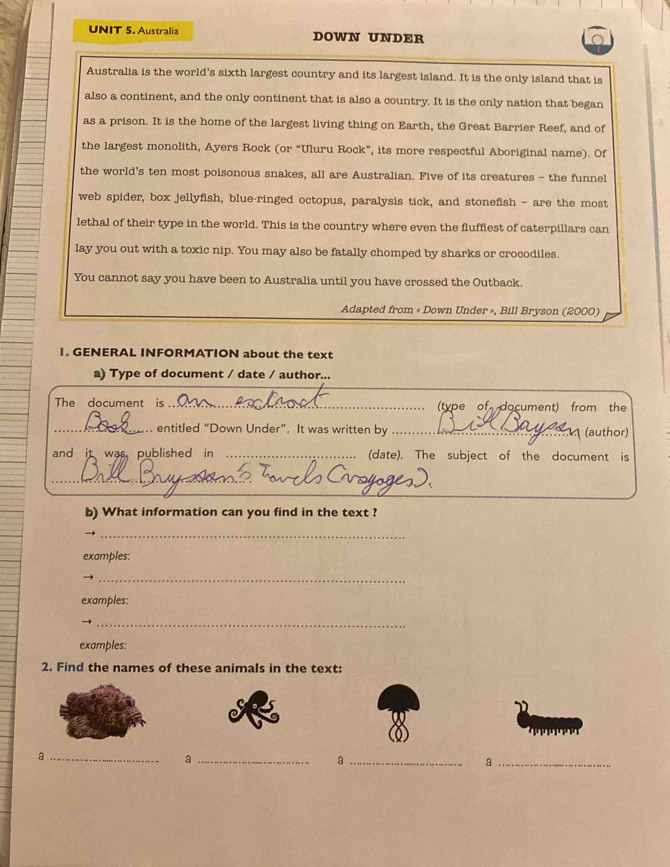 UNIT 5. Australia
DOWN UNDER
Australia is the world's sixth largest country and its largest island. It is the only island that is
also a continent, and the only continent that is also a country. It is the only nation that began
as a prison. It is the home of the largest living thing on Earth, the Great Barrier Reef, and of
the largest monolith, Ayers Rock (or "Uluru Rock", its more respectful Aboriginal name). Of
the world's ten most poisonous snakes, all are Australian. Five of its creatures – the funnel
web spider, box jellyfish, blue-ringed octopus, paralysis tick, and stonefish – are the most
lethal of their type in the world. This is the country where even the fluffiest of caterpillars can
lay you out with a toxic nip. You may also be fatally chomped by sharks or crocodiles.
You cannot say you have been to Australia until you have crossed the Outback.
Adapted from « Down Under », Bill Bryson (2000)
1. GENERAL INFORMATION about the text
a) Type of document / date / author...
The document is an extract (type of document) from the
Book entitled "Down Under". It was written by Bill Bayson (author)
and it was published in .......... (date). The subject of the document is
Bill Bryson's Travels (voyages).
b) What information can you find in the text ?
→ ..........
examples:
→ ..........
examples:
→ ..........
examples:
2. Find the names of these animals in the text:
a .......... a .......... a .......... a ..........